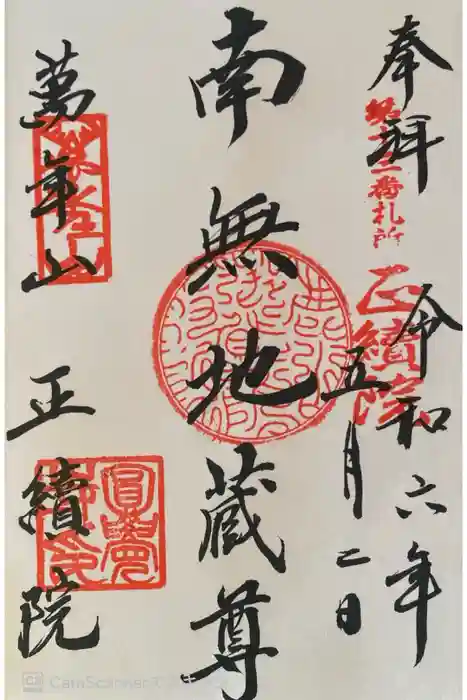 奉拝
番札所
正續院
令和六年
五月二日
南無地蔵尊
萬年山
正續院
CamScanner